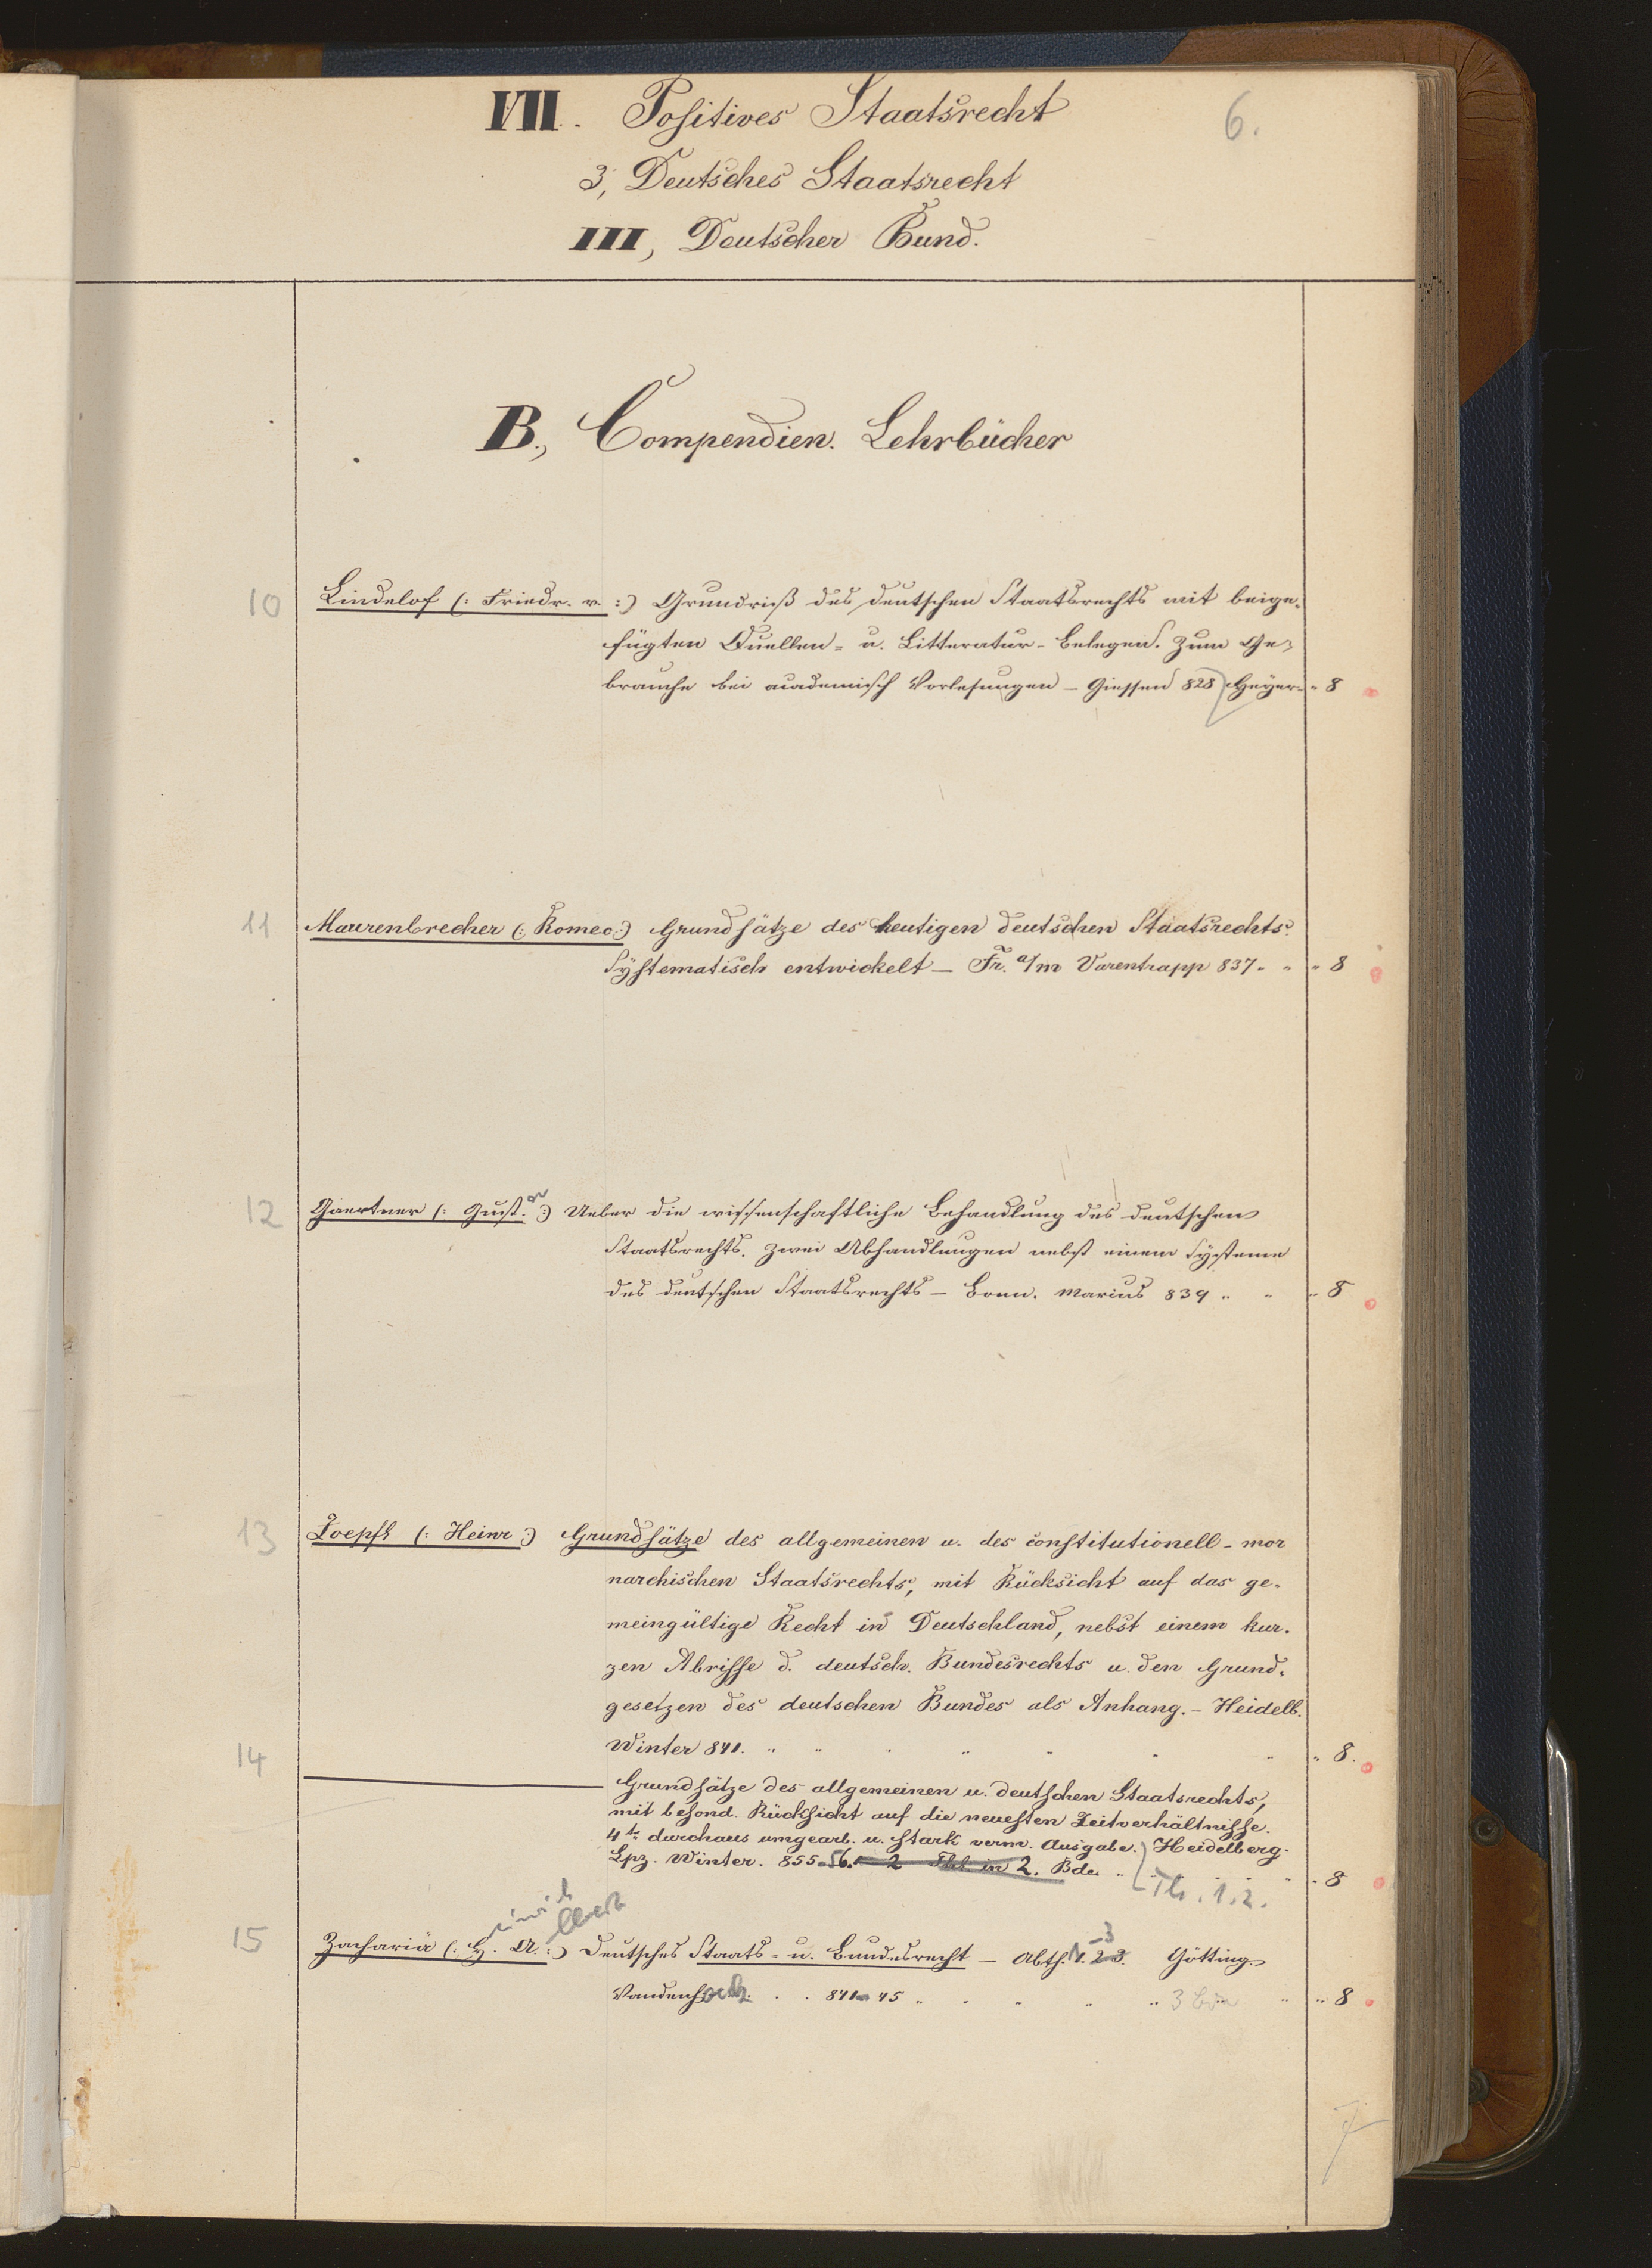 VII. Positives Staatsrecht
6.
3, Deutsches Staatsrecht
III, Deutscher Bund.
B., Compendien. Lehrbücher
10 Lindelof (: Friedr. v. :) Grundriß des deutschen Staatsrechts mit beige-
fügten Quellen- u. Litteratur-Belegen. Zum Ge-
brauche bei academisch Vorlesungen – Giessen 828 Heyer. " 8
11 Maurenbrecher (: Romeo :) Grundsätze des heutigen deutschen Staatsrechts
Systematisch entwickelt – Fr. a/m Varentrapp 837. " " 8
12 Gaertner (: Gust.av :) Ueber die wissenschaftliche Behandlung des deutschen
Staatsrechts. Zwei Abhandlungen nebst einem Systeme
des deutschen Staatsrechts – Bonn. Marcus 839 " " " 8
13 Zoepfl (: Heinr :) Grundsätze des allgemeinen u. des constitutionell-mo-
narchischen Staatsrechts, mit Rücksicht auf das ge-
meingültige Recht in Deutschland, nebst einem kur-
zen Abrisse d. deutsch. Bundesrechts u. den Grund-
gesetzen des deutschen Bundes als Anhang. – Heidelb.
Winter 841. " " " " " " " " 8.
14 ——— Grundsätze des allgemeinen u. deutschen Staatsrechts,
mit besond. Rücksicht auf die neuesten Zeitverhältnisse.
4te durchaus umgearb. u. stark verm. Ausgabe. Heidelberg.
Lpz. Winter. 855-56. 2 Thl. in 2. Bde. " " 8
Th. 1.2.
einrich lbert
15 Zachariä (: H. A. :) Deutsches Staats- u. Bundesrecht – Abth. 1. 2-3. -3 Götting.
Vandenhoeck. . . 841-45 " " " " " 3 Bde " " 8
7